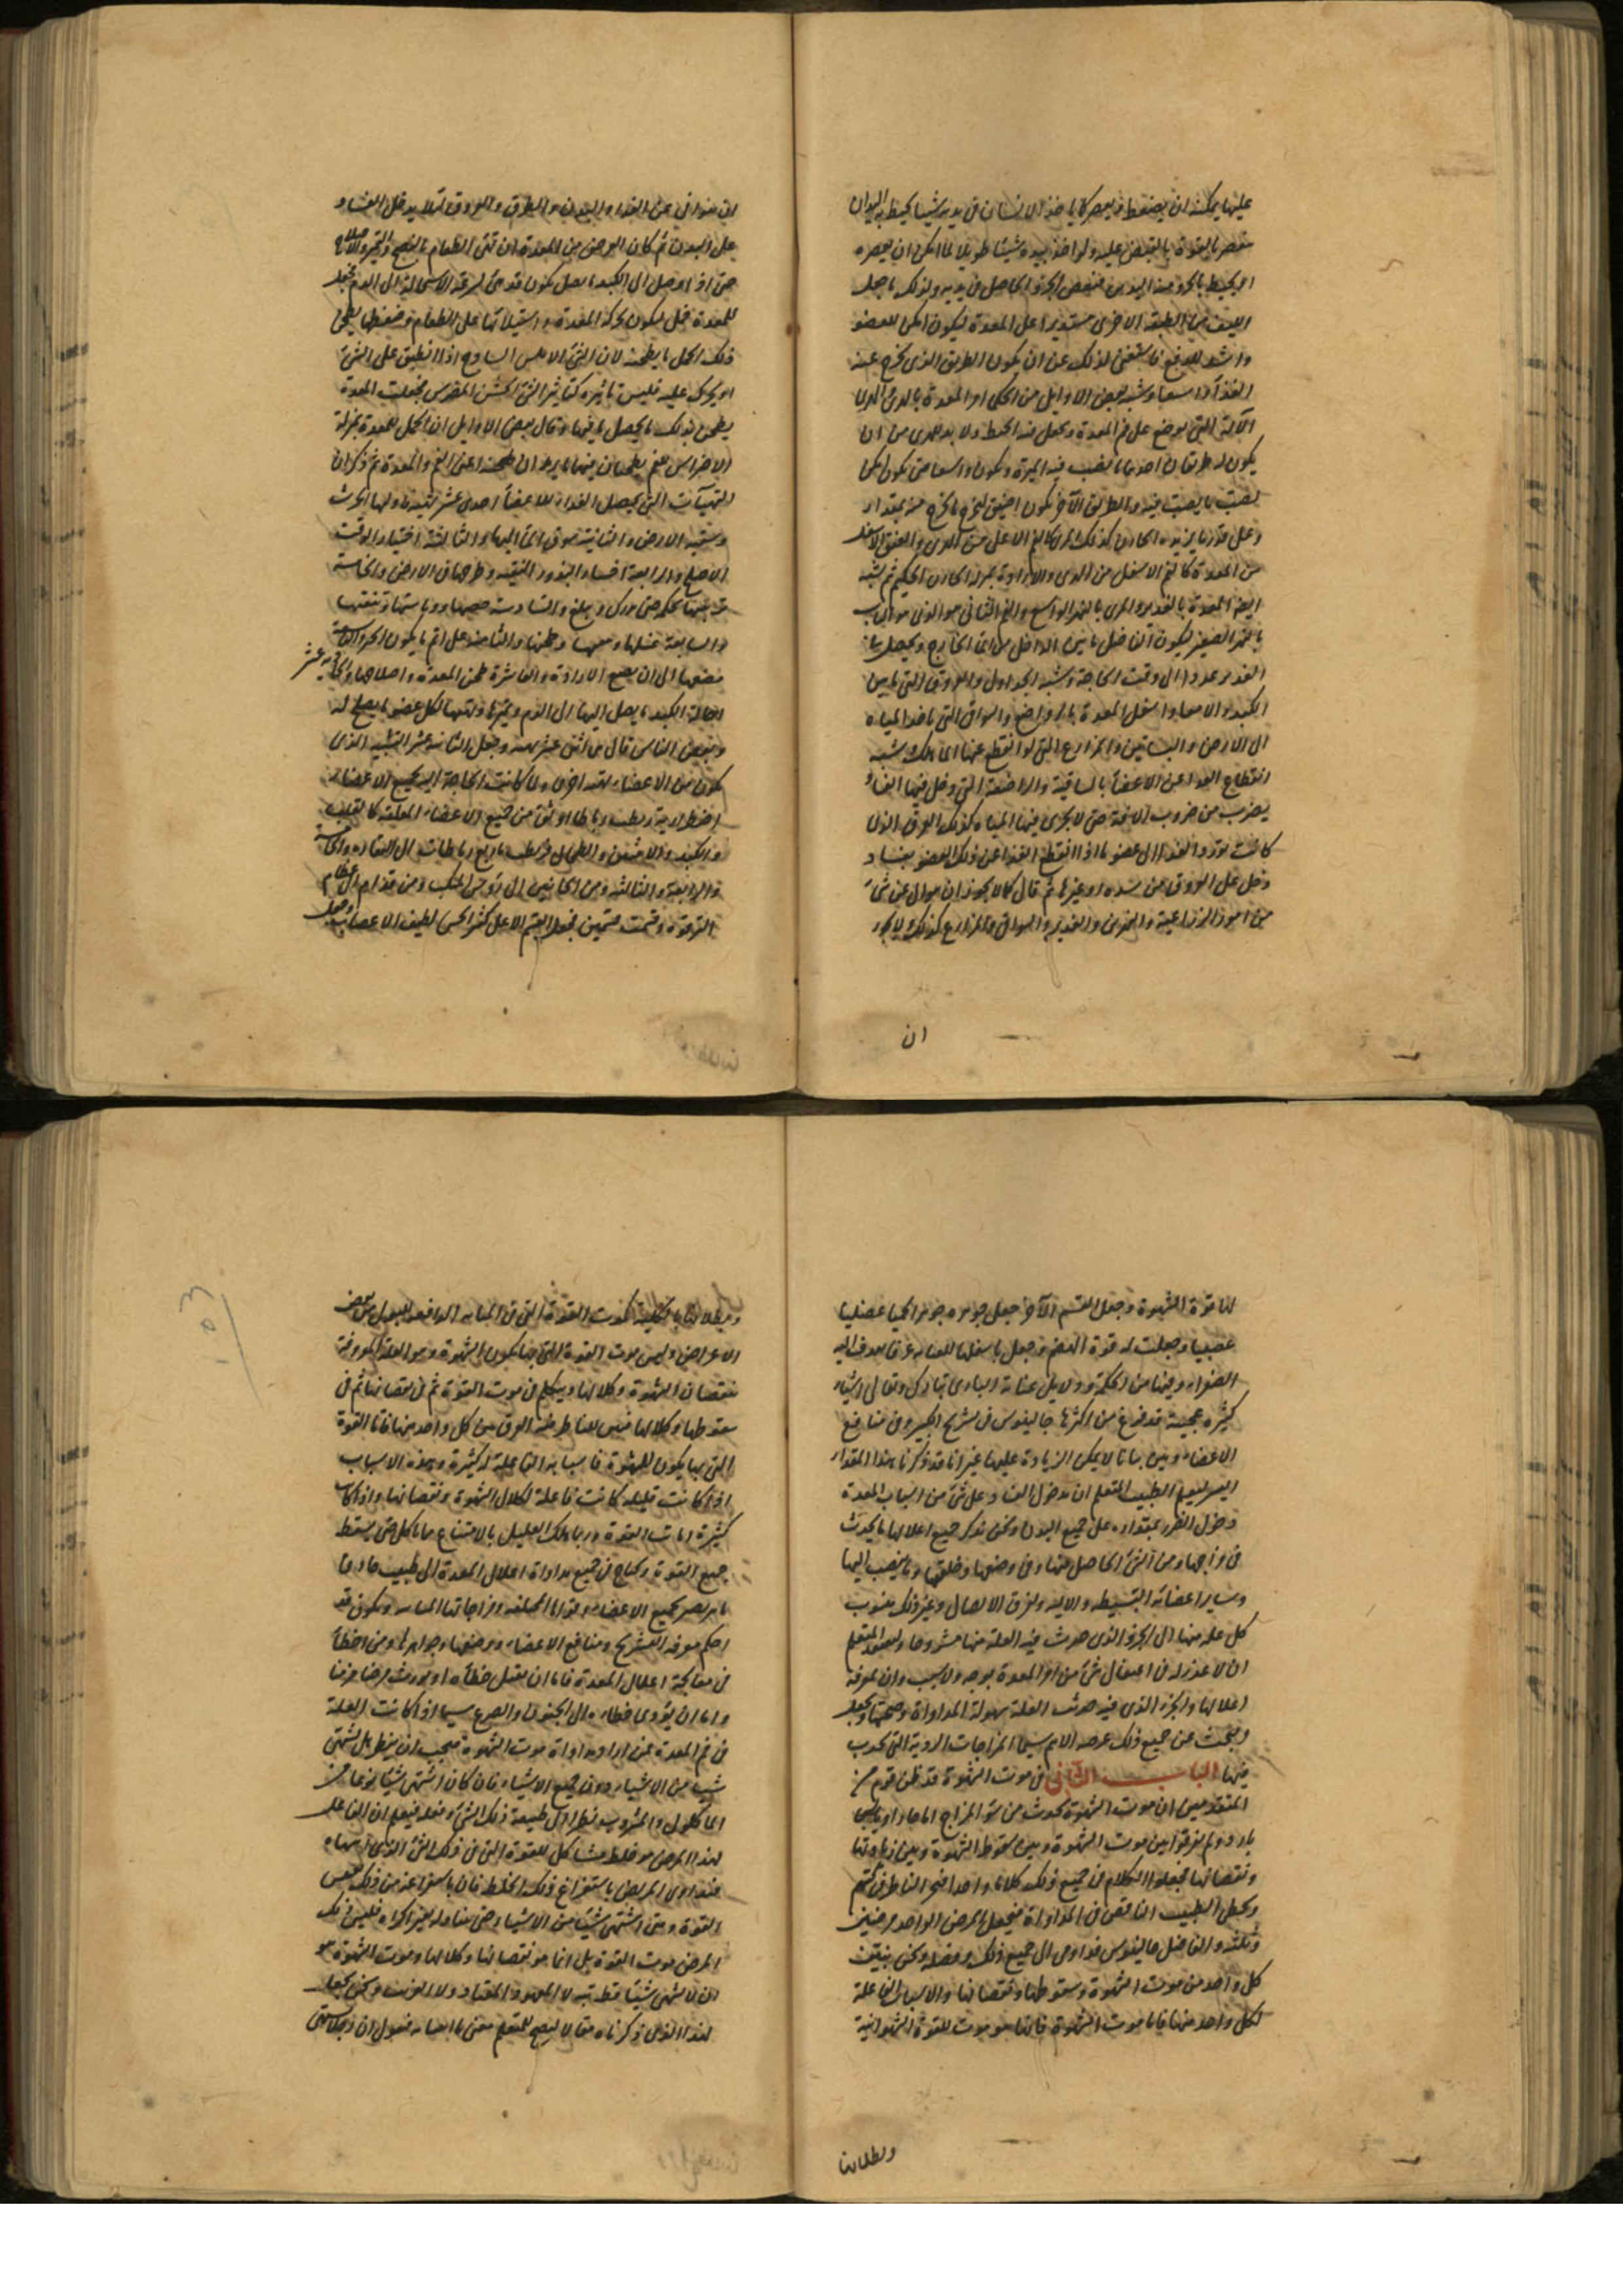 عليها يمكنه ان يضغط ويعصر كما ياخذ الانسان في يديه شيئا يحيط به اليدان
فتعصر بالقوة بالقبض عليه ولو اخذ بيده شيئا طويلا لما امكن ان يعصره
او يحيط بالجزء من اليدين فيقبض الجزء الحاصل في يديه ولذلك ما جعل
الليف من الطبقة الاخرى مستديرا على المعدة ليكون امكن للعضو
واشد للدفع فاستغنى لذلك عن ان يكون الطريق الذي يخرج عنه
الغذاء واسعا وشبه بعض الاوايل من الحكماء المعدة بالمرى
الآلة التي توضع على فم المعدة
يكون له طريقان احدهما يصب فيه الميرة ويكون واسعا حتى يكون امكن
لصب ما يصب فيه والطريق الآخر يكون اضيق ليخرج ما يخرج منه بمقدار
وعلى قدر ما يريده الخازن كذلك المرى كالفم الاعلى من المرى والعنق الاسفل
من المعدة كالفم الاسفل من المرى والارادة بمنزلة الخازن الحكيم ثم شبه
ايضا المعدة بالغدير والمرى بالنهر الواسع والفم الثاني هو الذي هو الباب
بالنهر الصغير ليكون الداخل من الماء الخارج ويحصل ما في
الغدير عددا الى وقت الحاجة وشبه الجداول والعروق التي ما بين
الكبد والامعاء واسفل المعدة بالرواضع والسواقي التي تاخذ المياه
الى الارض والبساتين والمزارع التي لو انقطع عنها الماء هلكت شبه
انقطاع الغذاء عن الاعضاء بالساقية والراضعة التي دخل فيها الفساد
بضرب من ضروب الآفة حتى لا يجري فيها المياه كذلك العرق الذي
كانت تؤدي الغذاء الى عضو ما اذا انقطع الغذاء عن ذلك العضو بفساد
دخل على العروق من سدة او غيرها ثم قال كما لا يجوز ان يتوانى عن شيء
من امور الزراعة والخزين والغدير والسواقي والمزارع كذلك لا يجوز
ان
ان يتوانى عن الغذاء والبدن والطرق والعروق لئلا يدخل الفساد
على البدن ثم كان الغرض من المعدة ان تهيء الطعام بالنضج والتغيير والاصلاح
حتى اذا وصل الى الكبد ما يصل يكون قد تهيء لسرعة الاستحالة الى الدم فجعل
للمعدة خمل ليكون بحركة المعدة واستيلائها على الطعام وضغطها يطحن
ذلك الخمل ما يطحنه لان الشيء الاملس الساذج اذا انطبق على الشيء
او تحرك عليه فليس تاثيره كتاثير الشيء الخشن المضرس فجعلت المعدة
يطحن بذلك ما يحصل فيها وقال بعض الاوايل ان الخمل للمعدة بمنزلة
الاضراس للفم يطحنان فيهما ما يراد ان يطحنه اعني الفم والمعدة ثم ذكر ان
التهيآت التي يحصل الغذاء للاعضاء احدى عشر تهيئة اولها الحرث
وسقيه الارض والثانية سوق الماء اليها والثالثة اختيار الوقت
الاصلح والرابعة اختيار البذور النقية وطرحها في الارض والخامسة
تربيتها بحكمة حتى تدرك وتبلغ والسادسة حصدها ودياستها وتنقيتها
والسابعة غسلها وطحنها والثامنة على اتم ما يكون الخبز والتاسعة
مضغها الى ان يبلع الارادة والعاشرة طحن المعدة واصلاحها والحادية عشر
احالة الكبد ما يصل اليها الى الدم وتميزها وقسمتها لكل عضو ما يصلح له
وبعض الناس قال هي اثنى عشر تهيئة وجعل الثانية عشر التشبه الذي
يكون من الاعضاء بقوة اخرى ولما كانت الحاجة الى جميع الاعضاء
اضطرارية ربطت رباطا اوثق من جميع الاعضاء المعلقة كالقلب
والكبد والانثيين والطحال فربطت باربع رباطات الى الفقارة والخامسة
والرابعة والثالثة ومن الجانبين الى رؤس المنكب ومن قدام الى عظام
الترقوة وقسمت قسمين فجعل القسم الاعلى كثير الحس لطيف الاعصاب وجعل
لها قوة الشهوة وجعل القسم الآخر جعل جوهره جوهرا لحميا عضليا
عصبيا وجعلت له قوة الهضم وجعل باسفلها للعناية عرقا يقذف اليه
الصفراء وفيها من الحكمة ودلايل عناية الباري تبارك وتعالى اشياء
كثيرة عجيبة قد فرغ من اكثرها جالينوس في تشريح الكبير وفي منافع
الاعضاء وبين بيانا لا يمكن الزيادة عليها غير انا قد ذكرنا هذا المقدار
اليسير ليعلم الطبيب المتعلم ان دخول الفساد على شيء من اسباب المعدة
دخول الضرر بمقداره على جميع البدن ونحن نذكر جميع اعلالها ما يحدث
في مزاجها ومن الشيء الحاصل فيها وفي وضعها وخلقتها وما ينصب اليها
وساير اعضائه البسيطة والآلية وتفرق الاتصال وغير ذلك وننسب
كل علة منها الى الجزء الذي حدث فيه العلة منها مشروحا ليعلم المتعلم
ان لا عذر له في اغفال شيء من امر المعدة بوجه ولا سبب وان بمعرفة
اعلالها والجزء الذي فيه حدثت العلة سهولة المداواة وصحتها ويجعل
وبحث عن جميع ذلك غرضه الاهم سيما المزاجات الردية التي تحدث
فيها الباب الثاني في موت الشهوة قد ظن قوم من
المتقدمين ان موت الشهوة يحدث من سوء المزاج اما حار او يابس
بارد ولم يفرقوا بين موت الشهوة وبين سقوط الشهوة وبين زيادتها
ونقصانها فجعلوا الكلام في جميع ذلك كلاما واحدا فتحير الناظر في كتبهم
ويخطئ الطبيب الناقص في المداواة فيجعل المرض الواحد مرضين
وثلثة والفاضل جالينوس قد اومى الى جميع ذلك وفصله ونحن نبين
كل واحد من موت الشهوة وسقوطها ونقصانها والاسباب الفاعلة
لكل واحد منها فاما موت الشهوة فانما هو موت للقوة الشهوانية
وبطلانها
وبطلانها بالكلية كموت القوة التي في المثانة الدافعة للبول من بعض
الاعراض وليس موت القوة التي بها يكون الشهوة وهو العلة المعروفة
بنقصان الشهوة وكلالها ونتكلم في موت القوة ثم في نقصانها ثم في
سقوطها وكلالها فيبين للناظر فيه الفرق بين كل واحد منها فاما القوة
التي بها يكون الشهوة فاسبابه الفاعلة له كثيرة وهذه الاسباب
اذا كانت قليلة كانت فاعلة لكلال الشهوة ونقصانها واذا كانت
كثيرة اماتت القوة وربما هلك العليل بالامتناع مما ياكل حتى يسقط
جميع القوة ويحتاج في جميع مداواة اعلال المعدة الى طبيب حاذق
ماهر بصير بجميع الاعضاء وقواها المختلفة ومزاجاتها ويكون قد
احكم معرفة التشريح ومنافع الاعضاء ووضعها وجواهرها ومن اخطأ
في معالجة اعلال المعدة فاما ان يقتل خطأه او يورث مرضا مزمنا
واما ان يؤدي خطاءه الى الجنون والصرع سيما اذا كانت العلة
في فم المعدة فمن اراد مداواة موت الشهوة فيجب ان ينظر هل تشتهي
شيئا من الاشياء دون جميع الاشياء فان كان اشتهى شيئا نوعا من
الماكول والمشروب نظر الى طبيعة ذلك الشيء وفعله فيعلم ان الفاعل
لهذا المرض هو خلط مشاكل للقوة التي في ذلك الشيء الذي اشتهاه
فيداوى المريض باستفراغ ذلك الخلط فان باستفراغه من ذلك تنتعش
القوة ومتى اشتهى شيئا من الاشياء حتى يتناوله بغير اكراه فليس ذلك
المرض موت القوة بل انما هو نقصانها وكلالها وموت الشهوة هو
ان لا يشتهي شيئا قط بتة لا المعهود المعتاد ولا الغريب ونحن نجعل
لهذا الذي ذكرناه مثالا ليصح للمتعلم معنى ما اتيناه فنقول ان رجلا اشتهى
١٠٣